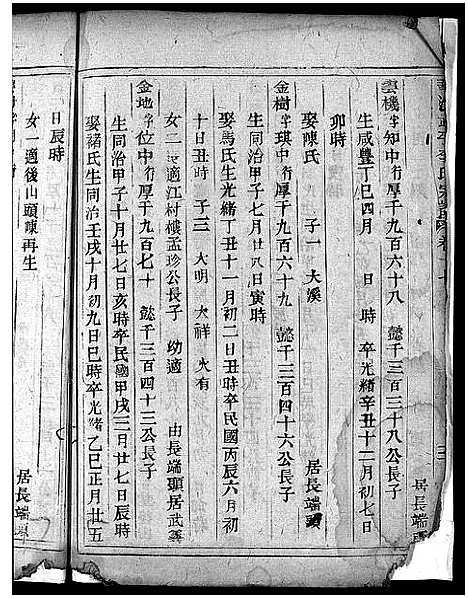 雲機字知中行厚千九百六十八　懿千三百三十八公長子
生咸豐丁巳四月　日　時　卒光緒辛丑十二月初七日
卯時
娶陳氏　子一　大溪　居長端頭
金樹字琪中行厚千九百六十九　懿千三百四十六公長子
生同治甲子七月廿八日寅時
娶馬氏生光緒丁丑十一月初二日丑時卒民國丙辰六月初
十日丑時　子三　大明　大祥　大有
女二　適江村樓孟珍公長子　幼適　由長端頭居武義
金地字位中行厚千九百七十　懿千三百四十三公長子
生同治甲子十月廿七日亥時卒民國甲戌三月廿七日辰時
娶褚氏生同治壬戌十月初九日巳時卒光緒乙巳正月廿五
日辰時
女一適後山頭陳再生
居長端頭